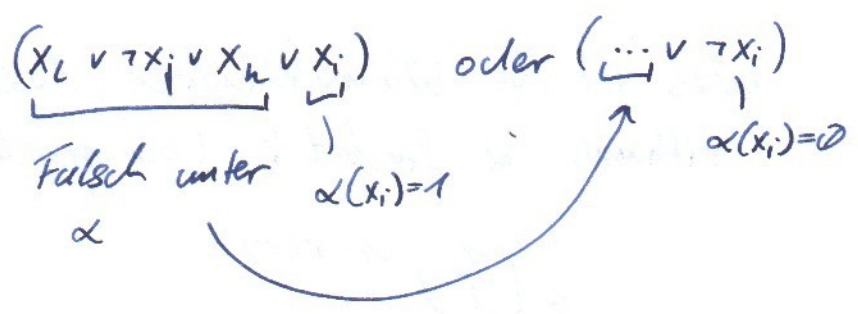 (x_l ∨ ¬x_j ∨ x_k ∨ x_i) oder (... ∨ ¬x_i)
Falsch unter α(x_i)=1 α(x_i)=0
α